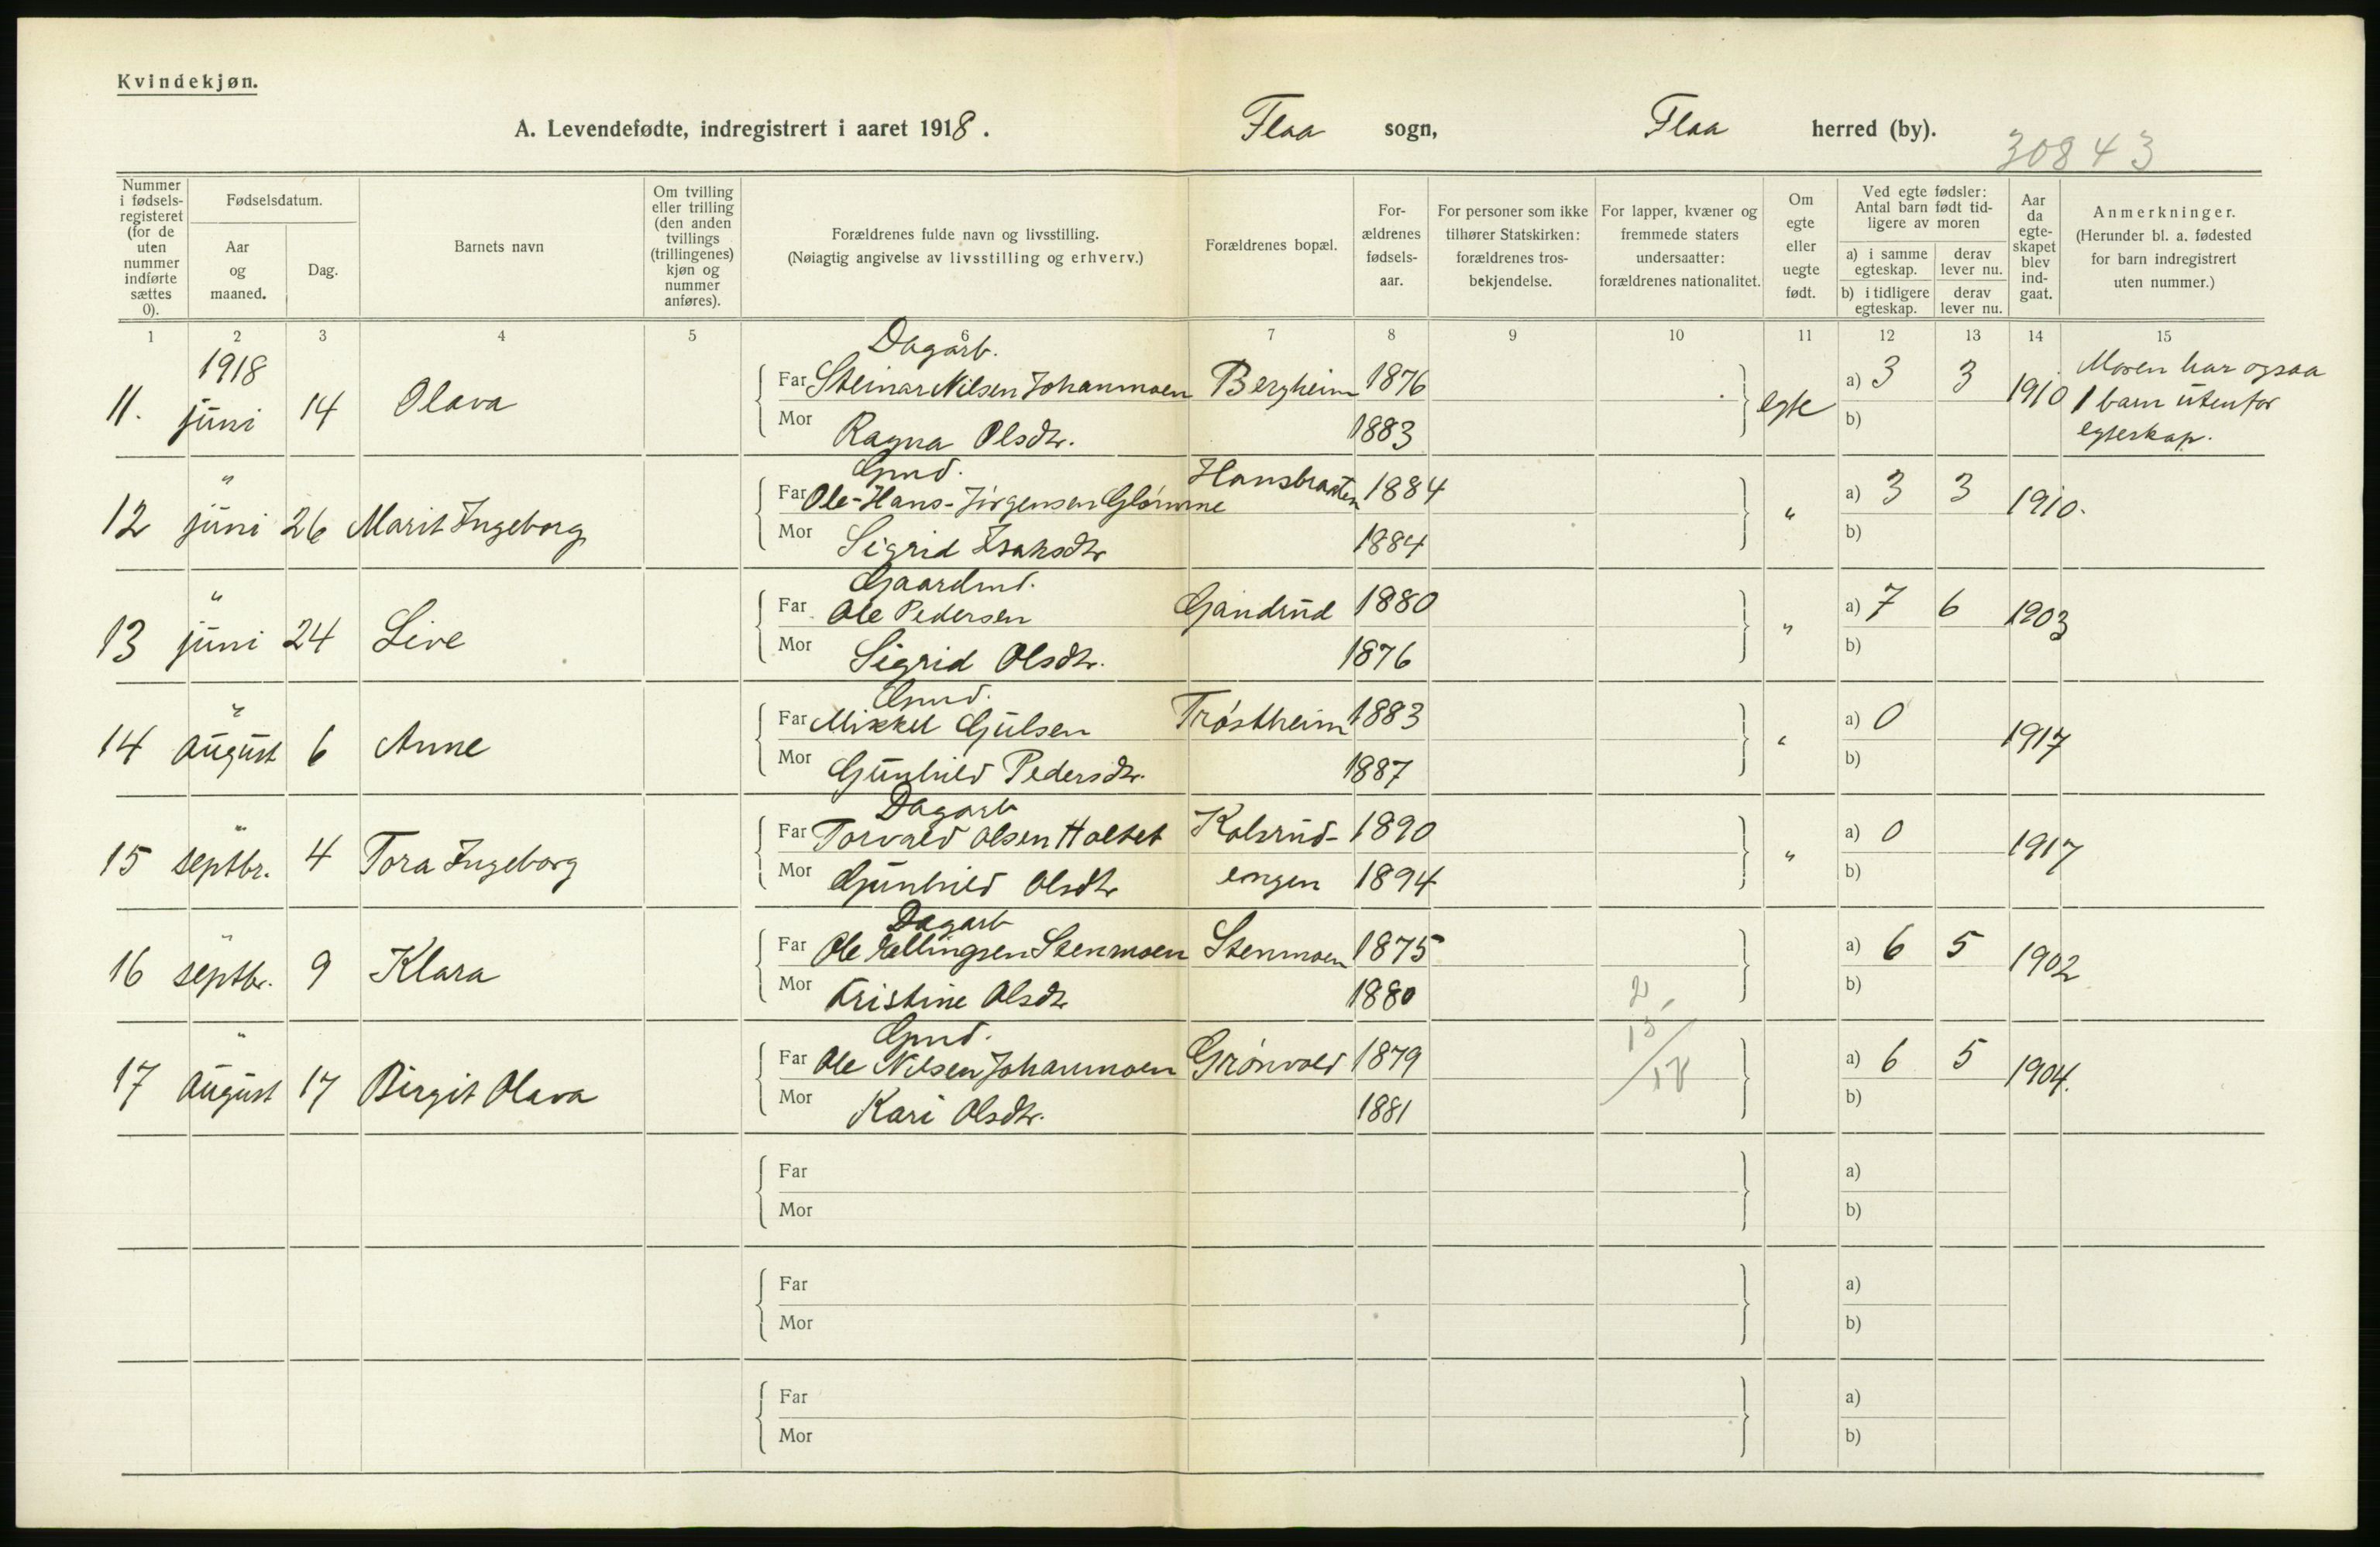 Kvindekjøn.
A. Levendefødte, indregistrert i aaret 1918. Flaa sogn, Flaa herred (by).
30843
Nummer i fødsels-registeret (for de uten nummer indførte sættes 0).
Fødselsdatum.
Aar og maaned.
Dag.
Barnets navn
Om tvilling eller trilling (den anden tvillings (trillingenes) kjøn og nummer anføres).
Forældrenes fulde navn og livsstilling.
(Nøiagtig angivelse av livsstilling og erhverv.)
Forældrenes bopæl.
For-ældrenes fødsels-aar.
For personer som ikke tilhører Statskirken: forældrenes tros-bekjendelse.
For lapper, kvæner og fremmede staters undersaatter: forældrenes nationalitet.
Om egte eller uegte født.
Ved egte fødsler: Antal barn født tid-ligere av moren
a) i samme egteskap. derav lever nu.
b) i tidligere egteskap. derav lever nu.
Aar da egte-skapet blev ind-gaat.
Anmerkninger.
(Herunder bl. a. fødested for barn indregistrert uten nummer.)
1 2 3 4 5 6 7 8 9 10 11 12 13 14 15
Dagarb.
11. 1918 juni 14 Olava Far Steinar Nilsen Johanmoen Bergheim 1876 egte a) 3 3 1910 Moren har ogsaa 1 barn utenfor egteskap.
Mor Ragna Olsdtr. 1883 b)
Gmd.
12 " juni 26 Marit Ingeborg Far Ole-Hans-Jørgensen Glømme Hansbraaten 1884 " a) 3 3 1910.
Mor Sigrid Isaksdtr 1884 b)
Gaardmd.
13 " juni 24 Live Far Ole Pedersen Gandrud 1880 " a) 7 6 1903
Mor Sigrid Olsdtr. 1876 b)
Gmd.
14 " august 6 Anne Far Mikkel Gulsen Trøstheim 1883 " a) 0 1917
Mor Gunhild Pedersdtr. 1887 b)
Dagarb
15 " septbr. 4 Tora Ingeborg Far Torvald Olsen Holtet Kolsrud- 1890 " a) 0 1917
Mor Gunhild Olsdtr engen 1894 b)
Dagarb
16 " septbr. 9 Klara Far Ole Ellingsen Stenmoen Stenmoen 1875 a) 6 5 1902
Mor Kristine Olsdtr 1880 b)
Gmd.
17 " august 17 Birgit Olava Far Ole Nilsen Johanmoen Grønvold 1879 a) 6 5 1904.
Mor Kari Olsdtr. 1881 b)
Far a)
Mor b)
Far a)
Mor b)
Far a)
Mor b)